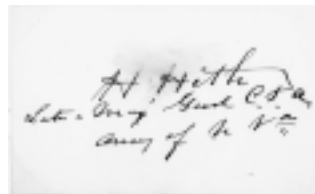 H Heth
Late Maj Genl C.S.a.
army of N Va